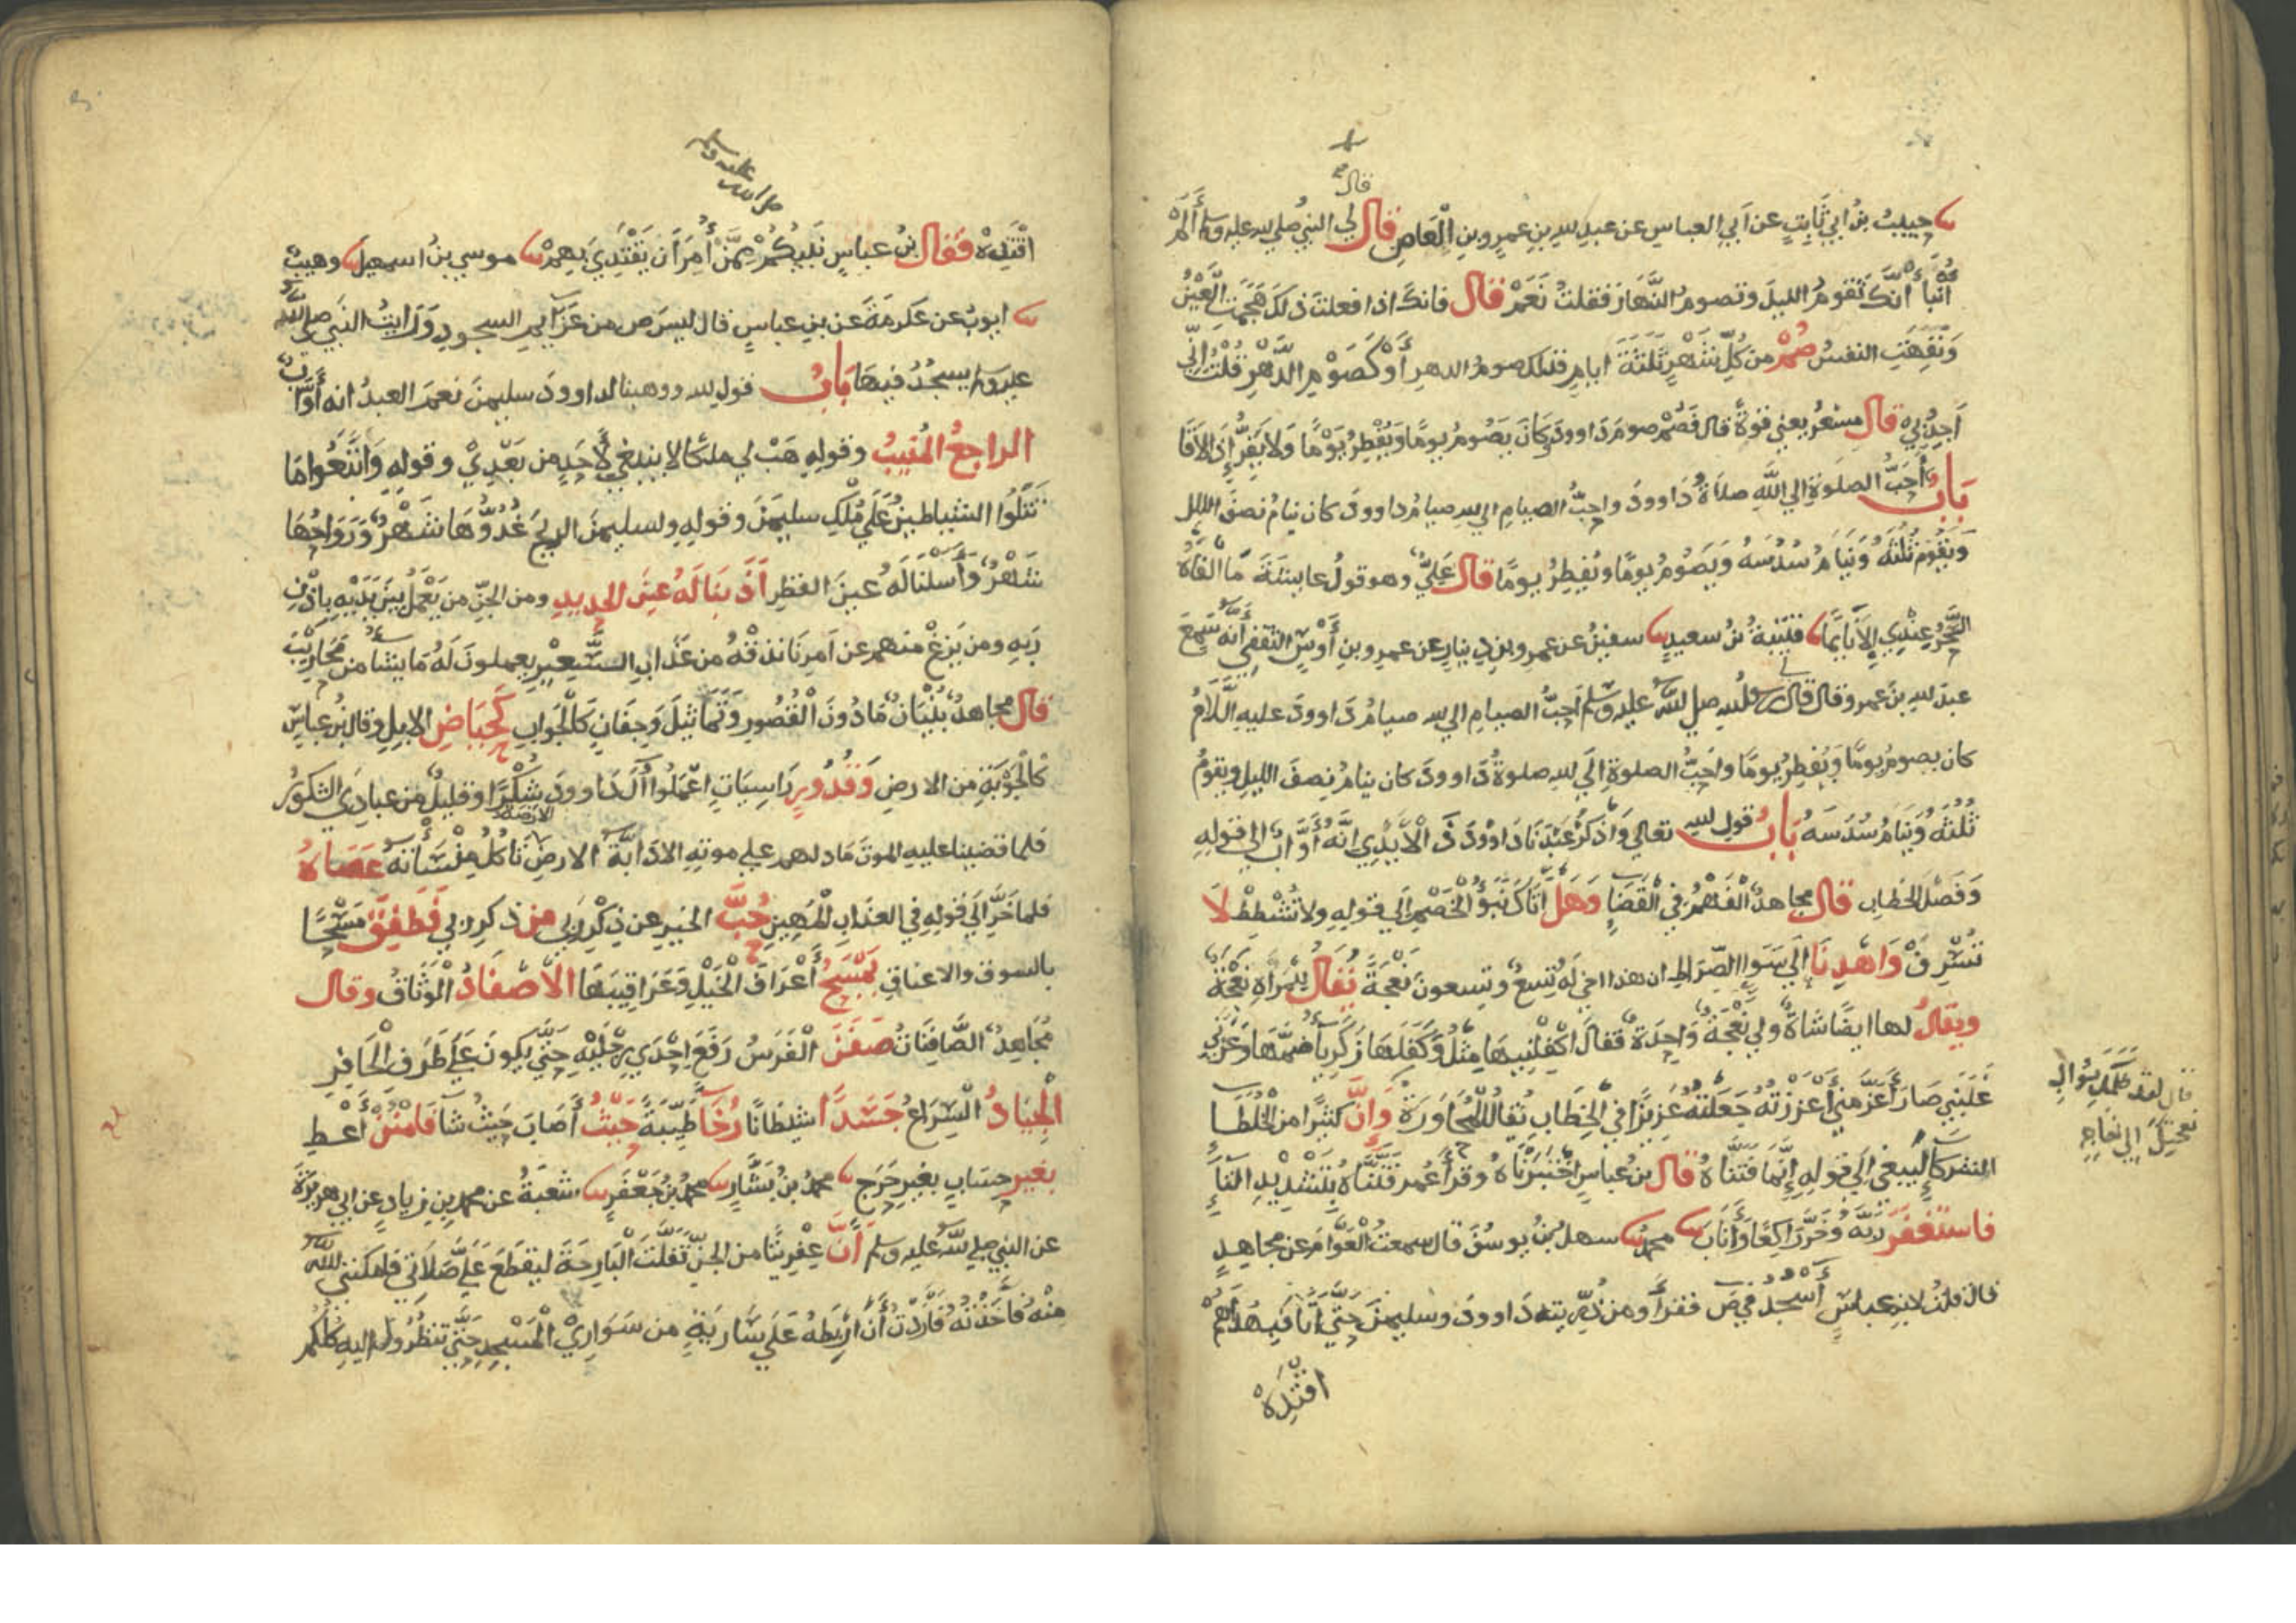 قال
حبيبُ بنُ ابي ثابتٍ عن ابي العباسِ عن عبدِ لله بنِ عمرِو بنِ الْعَاصِ قال لي النبيُّ صلي لله عليه وسلم أَلَمْ
أُنَبَّأْ أنّكَ تقومُ الليلَ وتصومُ النَّهَارَ فقلتُ نَعَمْ قال فانكَ اذا فعلتَ ذلكَ هَجَمَتِ الْعَيْنُ
وَنَفِهَتِ النفسُ صُمْ من كُلِّ شَهْرٍ ثَلَثَةَ ايامٍ فذلك صومُ الدهرِ أَوْ كَصَوْمِ الدَّهْرِ قُلْتُ إنّي
اَجِدُ بي قال مِسْعَرٌ يعني قوةً قال فَصُمْ صومَ دَاوودَ وكَانَ يَصُومُ يومًا وَيُفْطِرُ يَوْمًا وَلَا يَفِرُّ إِذَا لاقَا
بَابٌ أَحَبُّ الصلوةِ الي اللّهِ صلَاةُ دَاوودَ واحبُّ الصيامِ الي لله صيامُ داوودَ كان ينامُ نصفَ الليل
وَيَقُومُ ثُلُثَهُ وَيَنَامُ سُدُسَهُ وَيَصُومُ يومًا ويُفْطِرُ يومًا قال عَلِيٌّ وهو قولُ عايشَةَ مَا أَلْفَاهُ
السَّحَرُ عِنْدِي إلاَّ نَايمًا قتيبةُ بنُ سعيدٍ سفينُ عن عمرِو بنِ دينارٍ عن عمرِو بنِ أَوْسٍ الثقفِيِّ أنَّهُ سَمِعَ
عبدَ لله بنَ عمرٍو قال قال لي رسولُ لله صلي للهُ عليه وسلم اَحَبُّ الصيامِ الي لله صيامُ دَاوودَ عليه السَّلَامُ
كان يصومُ يومًا وَيُفطِرُ يومًا واَحَبُّ الصلوةِ اِلَي لله صلوةُ دَاوودَ كان ينامُ نِصفَ الليلِ ويقومُ
ثُلُثَهُ وَيَنَامُ سُدَسَهُ بَابُ قول لله تعالي وَاذكُرْ عَبْدَنَا دَاوُودَ ذَ الْأَيْدِي إنَّهُ أَوَّابٌ الي قولِهِ
وَفَصْلَ الخطابِ قال مجاهدٌ الْفَهْمُ في الْقَضَاءِ وَهَلْ أَتَاكَ نَبَؤُ الْخَصْمِ اِلَي قولِهِ ولا تُشْطِطْ لَا
تُسْرِفْ وَاهْدِنَا اِلَي سَوَاءِ الصِّرَاطِ ان هذا اخي لَهُ تِسعٌ وتسعونَ نَعْجَةً يُقَالُ لِلْمَرْأَةِ نَعْجَةٌ
ويقالُ لها ايضًا شاةٌ ولي نَعْجَةٌ وَاحِدَةٌ فقالَ اكفِلْنِيهَا مِثْلُ وَكَفَلَهَا زكريآءُ ضَمَّهَا وَعَزَّنِي
غَلَبَنِي صَارَ أَعَزَّ مِنِّي أَعْزَزْتُهُ جَعَلْتُهُ عَزِيزًا فِي الْخِطَابِ يُقالُ الْمُحَاوَرَةُ وَإنَّ كثيرًا من الْخُلَطَاءِ
الشركاءِ لَيَبغي اِلَي قولِهِ إِنَّمَا فَتَنَّاهُ قال بنُ عباسٍ اخْتَبَرْنَاهُ وقرأَ عُمَرُ فَتَّنَّاهُ بِتَشْدِيدِ التَّاءِ
فاسْتَغْفَرَ رَبَّهُ وَخَرَّ رَاكِعًا وَأَنَابَ محمدٌ سهلُ بنُ يوسُفَ قال سمعتُ الْعَوَّامَ عن مجاهدٍ
قال قلتُ لابنِ عباسٍ أَسْجُدُ في صَ فقرأَ ومن ذُرِّيتِهِ دَاوودَ وسليمنَ حَتَّي أتَا فَبِهُدَاهُمُ
اقْتَدِهْ
قال لقد ظلمك بسؤال
نعجتك الي نعاجه
صلي الله
عليه وسلم
اقْتَدِهْ فقال بنُ عباسٍ نَبِيُّكُمْ مِمَّنْ أُمِرَ أن يَقْتَدِيَ بِهِمْ موسي بنُ اسمعيل وهيبٌ
ايوبُ عن عكرمةَ عن بنِ عباسٍ قال ليسَ ص من عَزَايمِ السجودِ وَرَايتُ النبيَ صلي الله
عليه وسلم يسجُدُ فيها بَابُ قول لله ووهبنا لداوودَ سليمنَ نعمَ العبدُ انه أَوَّابٌ
الراجعُ المُنِيبُ وقولِهِ هَبْ لي ملكًا لا ينبغي لِأَحَدٍ من بَعْدِيْ وقولِهِ وَاتَّبَعُوا مَا
تَتْلُوا الشياطينُ عَلَي مُلْكِ سليمنَ وقولِهِ ولسليمنَ الريحَ غُدُوُّهَا شَهْرٌ وَرَوَاحُهَا
شَهْرٌ وَأَسَلْنَا لَهُ عينَ القطرِ أَذَبنَا لَهُ عينَ الحديدِ ومن الجنِّ من يَعْمَلُ بَيْنَ يَدَيْهِ بِاِذْنِ
رَبِهِ ومن يَزِغْ منهم عن اَمْرِنَا نذقْهُ من عَذَابِ السَّعِيْرِ يعملونَ لَهُ مَا يشاءُ من مَحَارِيْبَ
قال مجاهدٌ بُنْيَانٌ مَا دُونَ الْقُصُورِ وَتَمَاثِيلَ وَجِفَانٍ كَالْجَوَابِ كَحِيَاضِ الابلِ وقال بنُ عباسٍ
كَالْجَوْبَةِ من الارضِ وَقُدُورٍ رَاسِيَاتٍ اعْمَلُوا آلَ دَاوودَ شُكْرًا وقليلٌ من عبادِي الشكورُ
فلما قضينا عليه الموتَ مَا دلهم علي موتِهِ الا دَابَّةُ الارضِ الارضة تَأْكُلُ مِنْسَأَتَهُ عَصَاهُ
فلما خَرَّ اِلَي قولِهِ فِي العذابِ الْمُهِينِ حُبَّ الخيرِ عن ذِكْرِ رَبي من ذكرِ ربي فَطَفِقَ مَسْحًا
بالسوقِ والاعناقِ يَمْسَحُ أَعْرَافَ الْخَيْلِ وَعَرَاقِيبَهَا الْأَصْفَادُ الْوَثَاقُ وقال
مُجَاهِدٌ الصَّافِنَاتُ صَفَنَ الْفَرَسُ رَفَعَ اِحْدَي رِجْلَيْهِ حَتَّي يكونَ عَلَي طَرَفِ الْحَافِرِ
الْجِيَادُ السِّرَاعُ جَسَدًا شيطَانًا رُخَاءً طَيِّبَةً حَيْثُ أَصَابَ حَيْثُ شَآءَ فَامْنُنْ أَعْطِ
بغيرِ حِسَابٍ بغيرِ حَرَجٍ محمدُ بنُ بَشَّارٍ محمدُ بنُ جَعْفَرٍ شعبَةُ عن محمدِ بنِ زيادٍ عن ابي هريرةَ
عن النبي صلي للهُ عليه وسلم أَنَّ عِفْرِيتًا من الجنِّ تَفَلَّتَ الْبَارِحَةَ ليقطَعَ عَلَيَّ صَلَاتِي فَاَمكَنَنِي الله
مِنْهُ فَأَخَذْتُهُ فَأَرَدْتُ أَنْ أَرْبِطَهُ عَلَي سَارِيَةٍ من سَوَارِيْ الْمَسْجِدِ حَتَّي تنظُرُوا اليهِ كُلُّكُمْ